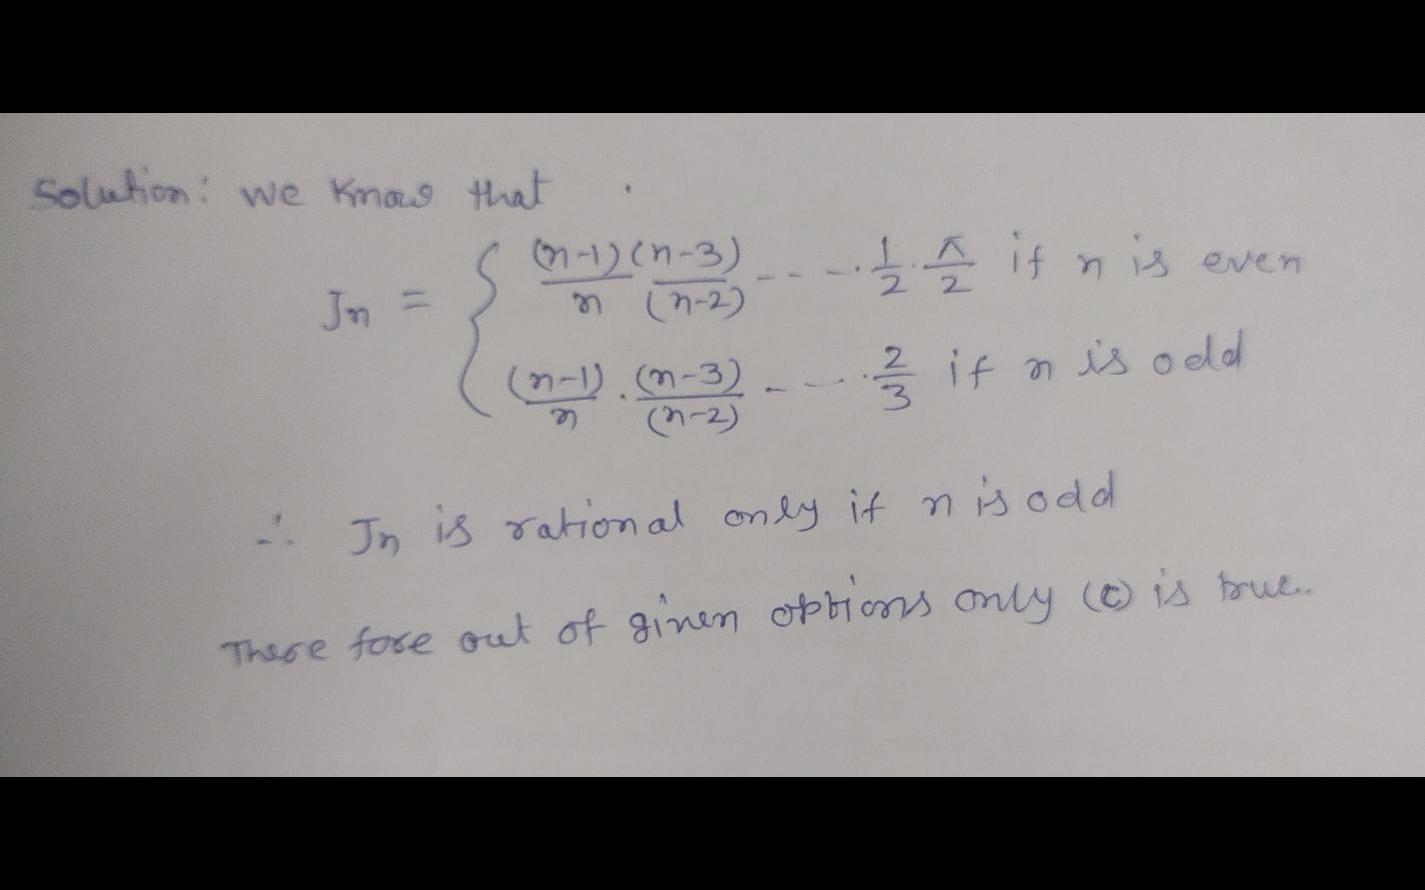 Solution: we know that
Jn = { (n-1)/n (n-3)/(n-2) ---- . 1/2 . π/2 if n is even
(n-1)/n . (n-3)/(n-2) ---- . 2/3 if n is odd
∴ Jn is rational only if n is odd
There fore out of given options only (c) is true.